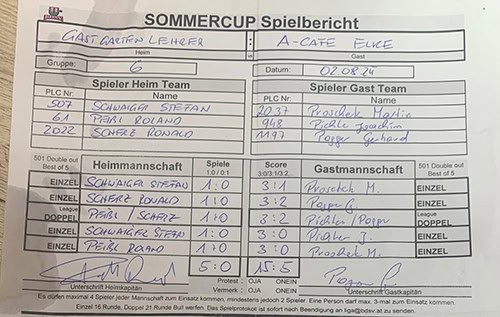 SOMMERCUP Spielbericht
GASTGARTEN LEHRER : A-CAFE ELKE
Heim Gast
Gruppe: 6 Datum: 02.08.24
Spieler Heim Team Spieler Gast Team
PLC Nr. PLC Nr.
507 SCHWAIGER STEFAN 2037 Proschek Martin
61 PEIßL ROLAND 948 Pichler Joachim
2022 SCHERZ RONALD 1197 Pogger Gerhard
501 Double out Best of 5 Heimmannschaft Spiele 1:0 / 0:1 Score 3:0/3:1/3:2... Gastmannschaft 501 Double out Best of 5
EINZEL SCHWAIGER STEFAN 1:0 3:1 Proschek M. EINZEL
EINZEL SCHERZ RONALD 1:0 3:2 Pogger G. EINZEL
League DOPPEL PEIßL / SCHERZ 1:0 3:2 Pichler / Pogger League DOPPEL
EINZEL SCHWAIGER STEFAN 1:0 3:0 Pichler J. EINZEL
EINZEL PEIßL ROLAND 1:0 3:0 Proschek M. EINZEL
5:0 15:5
Unterschrift Heimkapitän Protest : OJA ONEIN Unterschrift Gastkapitän
Vermerk : OJA ONEIN
Es dürfen maximal 4 Spieler jeder Mannschaft zum Einsatz kommen, mindestens jedoch 2 Spieler. Eine Person darf max. 3-mal zum Einsatz kommen.
Einzel 16 Runde, Doppel 21 Runde Bull werfen. Das Spielprotokoll ist sofort nach Beendigung an liga@tvdsv.at zu senden.